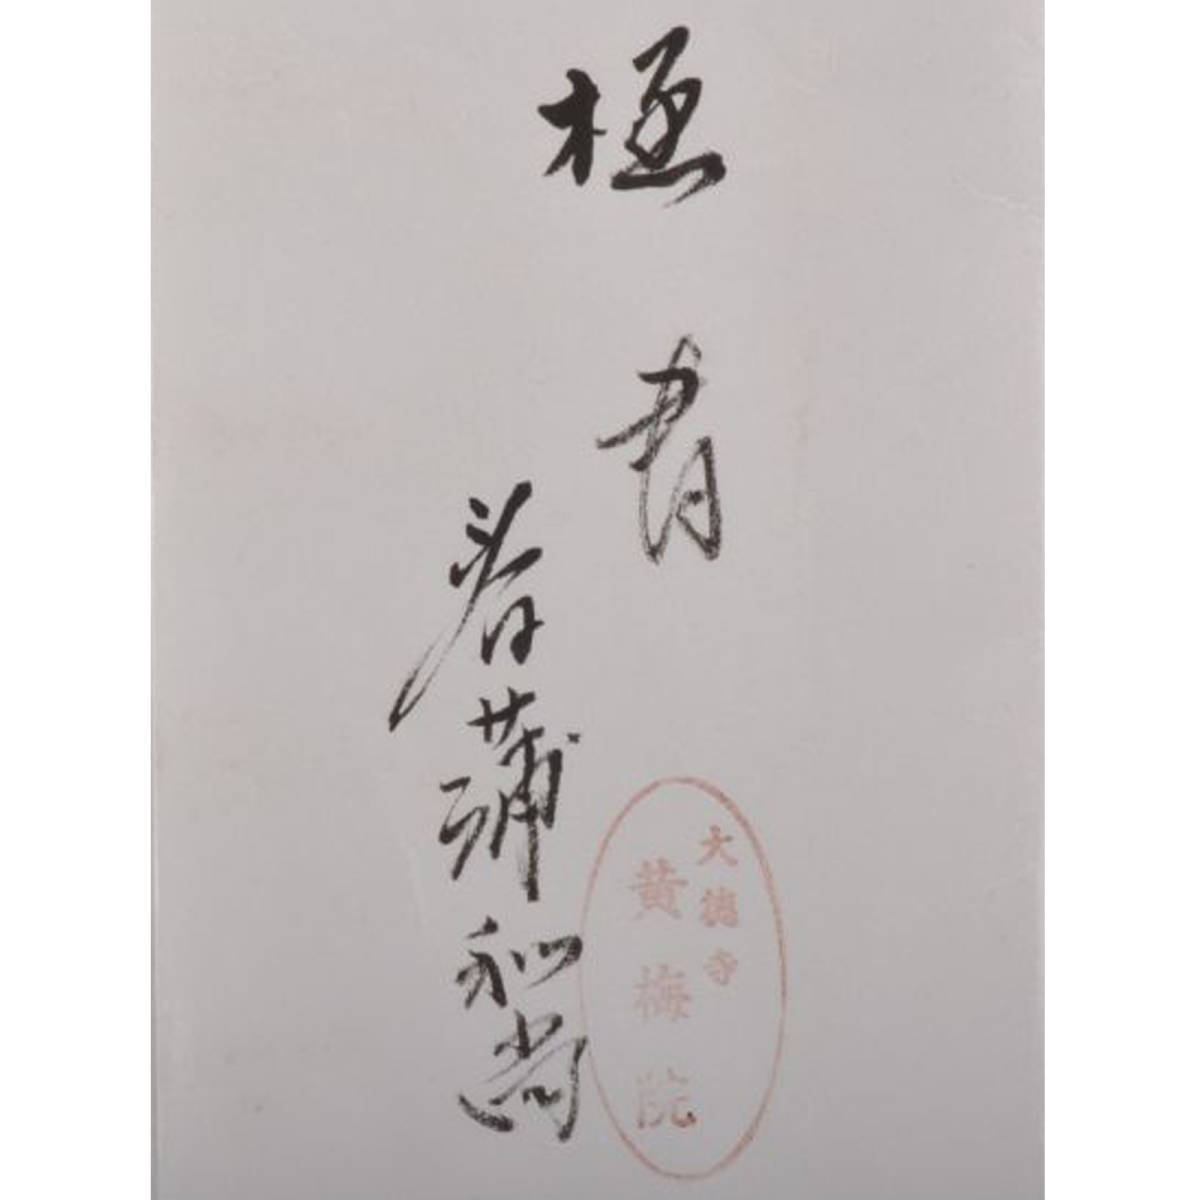 極書
春蒲和尚
大徳寺
黄梅院